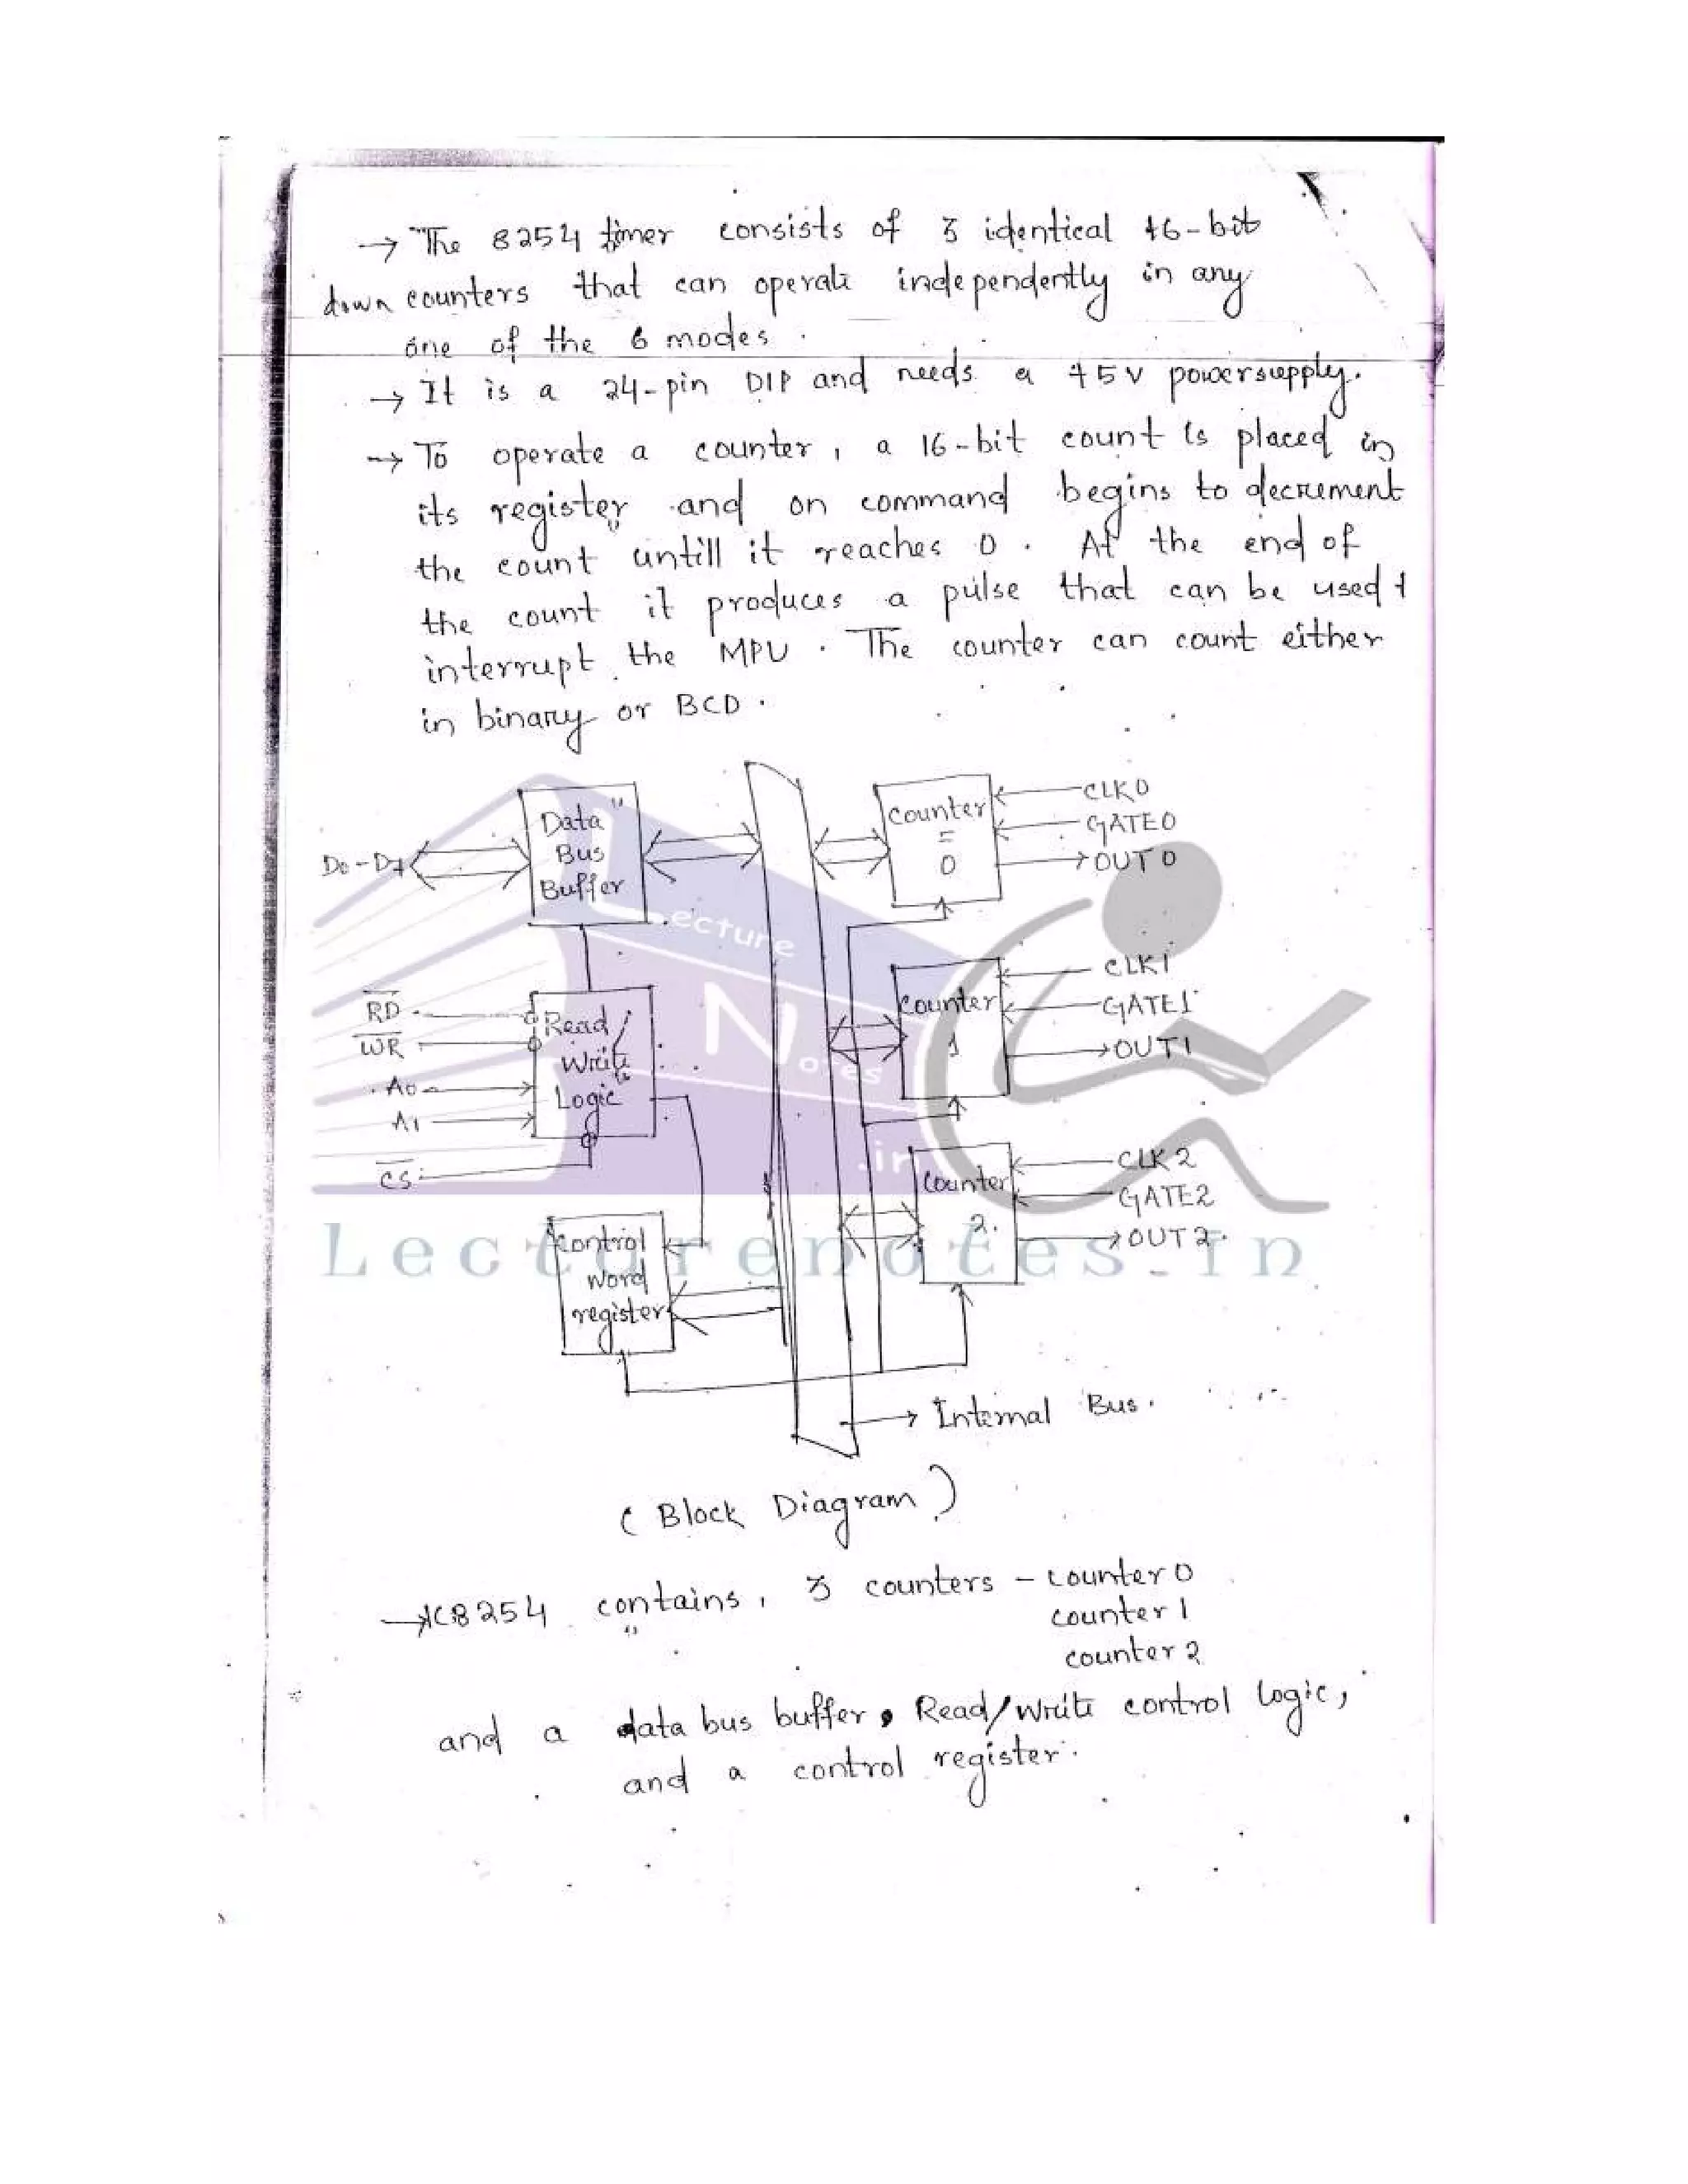 → The 8254 timer consists of 3 identical 16-bit
down counters that can operate independently in any
one of the 6 modes.
→ It is a 24-pin DIP and needs a +5V powersupply.
→ To operate a counter, a 16-bit count is placed in
its register and on command begins to decrement
the count untill it reaches 0. At the end of
the count it produces a pulse that can be used t
interrupt the MPU. The counter can count either
in binary or BCD.
D0-D7
Data
Bus
Buffer
Counter
=
0
CLK0
GATE0
OUT0
RD
WR
A0
A1
CS
Read/
Write
Logic
Counter
1
CLK1
GATE1
OUT1
Control
Word
register
Counter
2.
CLK2
GATE2
OUT2.
→ Internal Bus.
(Block Diagram)
→ IC8254 contains, 3 counters - counter 0
counter 1
counter 2
and a data bus buffer, Read/write control logic,
and a control register.
Lecture
Notes
.in
Lecturenotes.in